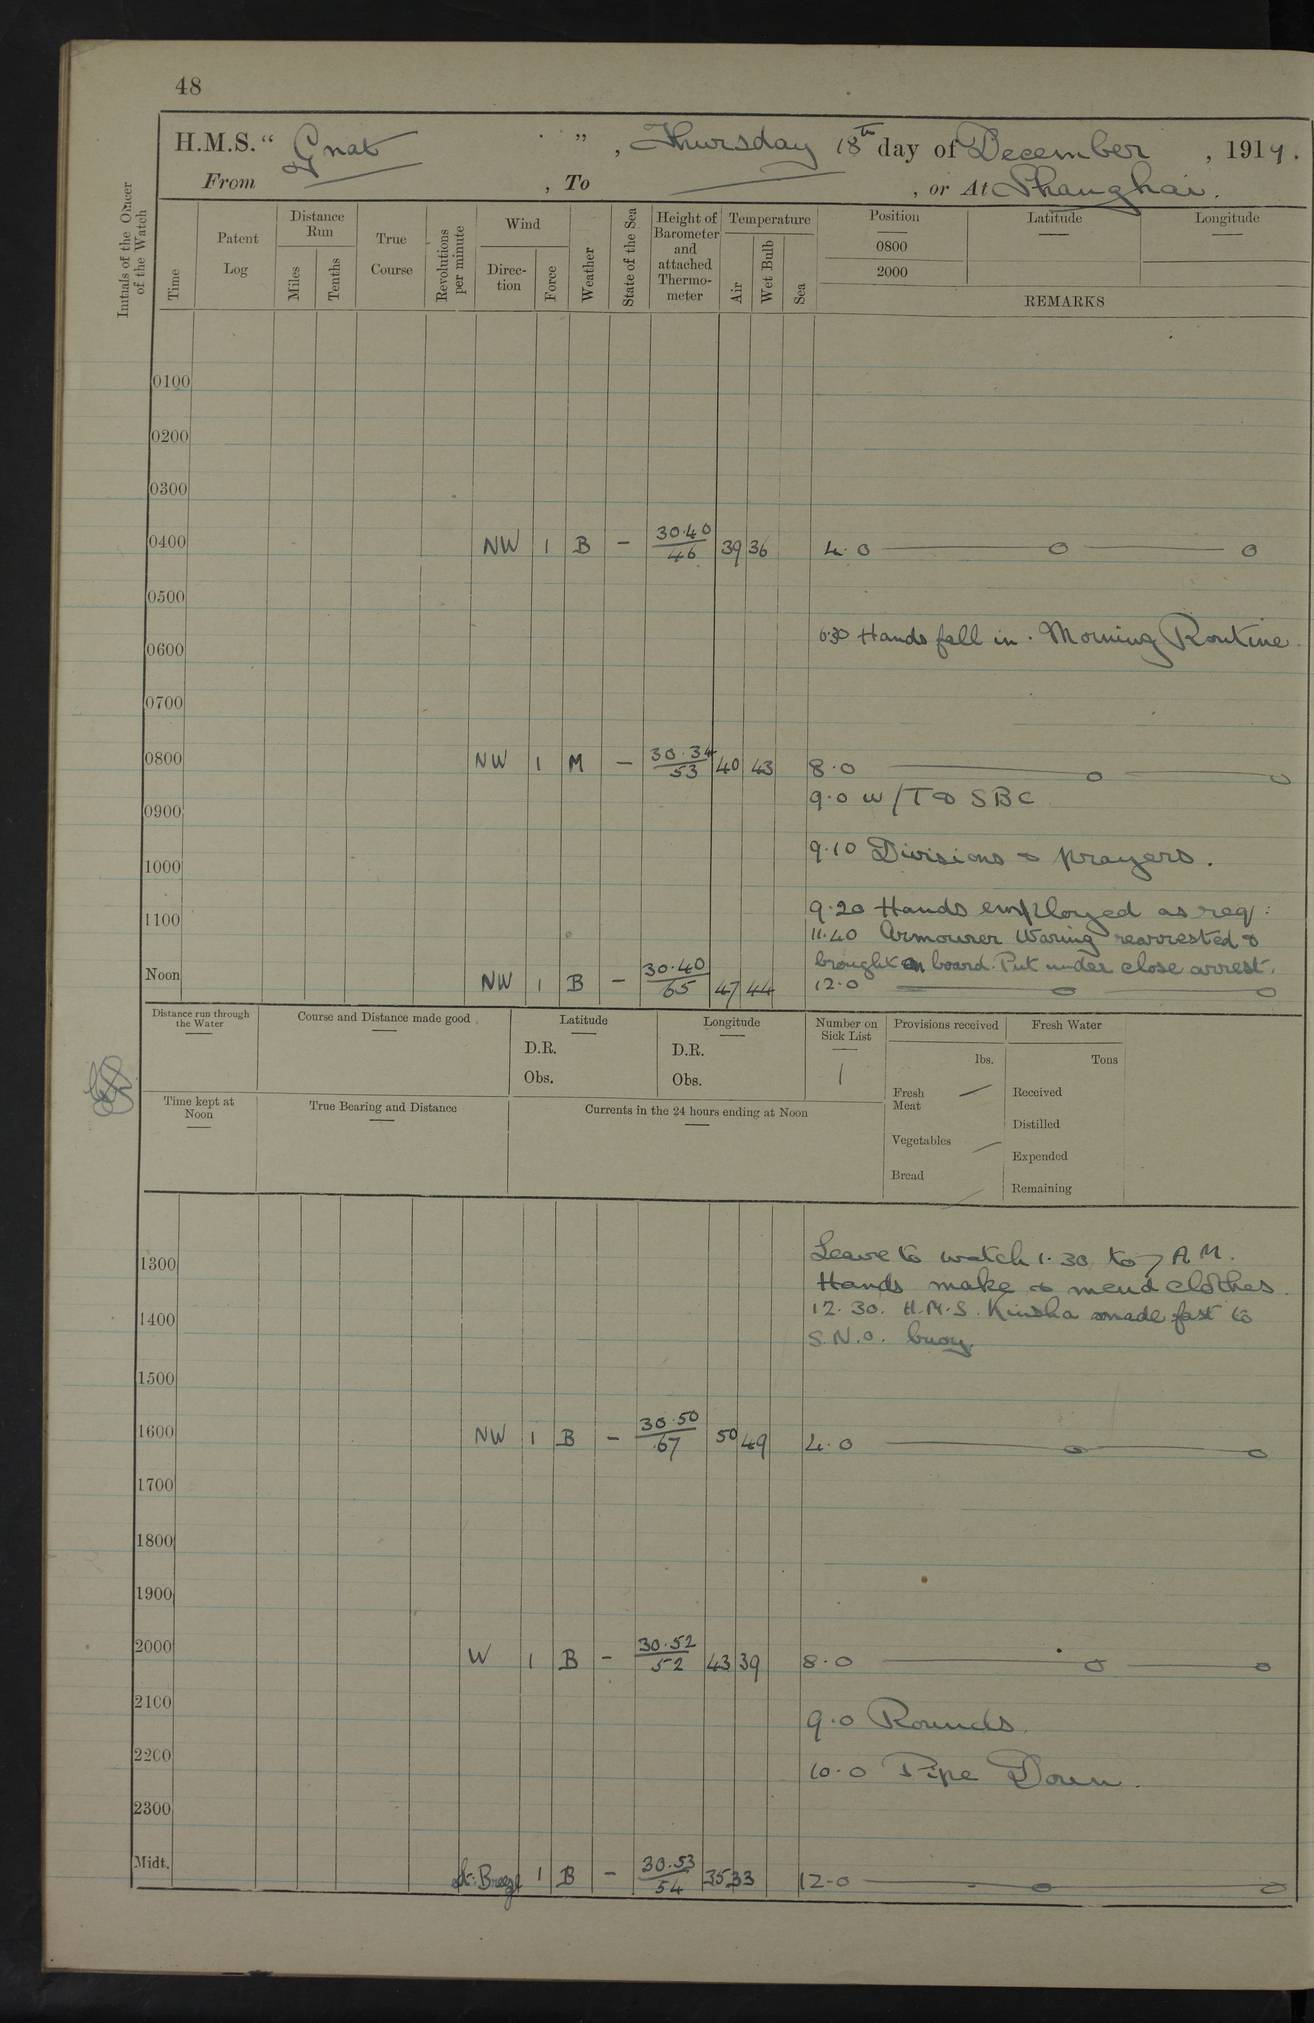 48
H.M.S. " Gnat ", Thursday 18th day of December, 1919.
From , To , or At Shanghai.
Initials of the Officer of the Watch
Time
Patent Log
Distance Run
Miles
Tenths
True Course
Revolutions per minute
Wind
Direc-tion
Force
Weather
State of the Sea
Height of Barometer and attached Thermo-meter
Temperature
Air
Wet Bulb
Sea
Position
0800
2000
Latitude
Longitude
REMARKS
0100
0200
0300
0400 NW 1 B – 30.40/46 39 36 4.0
0500
6.30 Hands fall in. Morning Routine.
0600
0700
0800 NW 1 M – 30.34/53 40 43 8.0
9.0 W/T & SBC
0900
9.10 Divisions & prayers.
1000
9.20 Hands employed as req:
1100
11.40 Armourer Waring rearrested &
brought on board. Put under close arrest.
Noon NW 1 B – 30.40/65 47 44 12.0
Distance run through the Water
Course and Distance made good
Latitude
D.R.
Obs.
Longitude
D.R.
Obs.
Number on Sick List
1
Provisions received
lbs.
Fresh Meat
Vegetables
Bread
Fresh Water
Tons
Received
Distilled
Expended
Remaining
Time kept at Noon
True Bearing and Distance
Currents in the 24 hours ending at Noon
Leave to watch 1.30 to 7 A.M.
1300
Hands make & mend clothes.
12.30. H.M.S. Kinsha made fast to
1400
S.N.O. buoy.
1500
1600 NW 1 B – 30.50/67 50 49 4.0
1700
1800
1900
2000 W 1 B – 30.52/52 43 39 8.0
2100
9.0 Rounds.
2200
10.0 Pipe Down.
2300
Midt. Lt: Breeze 1 B – 30.53/54 35 33 12.0